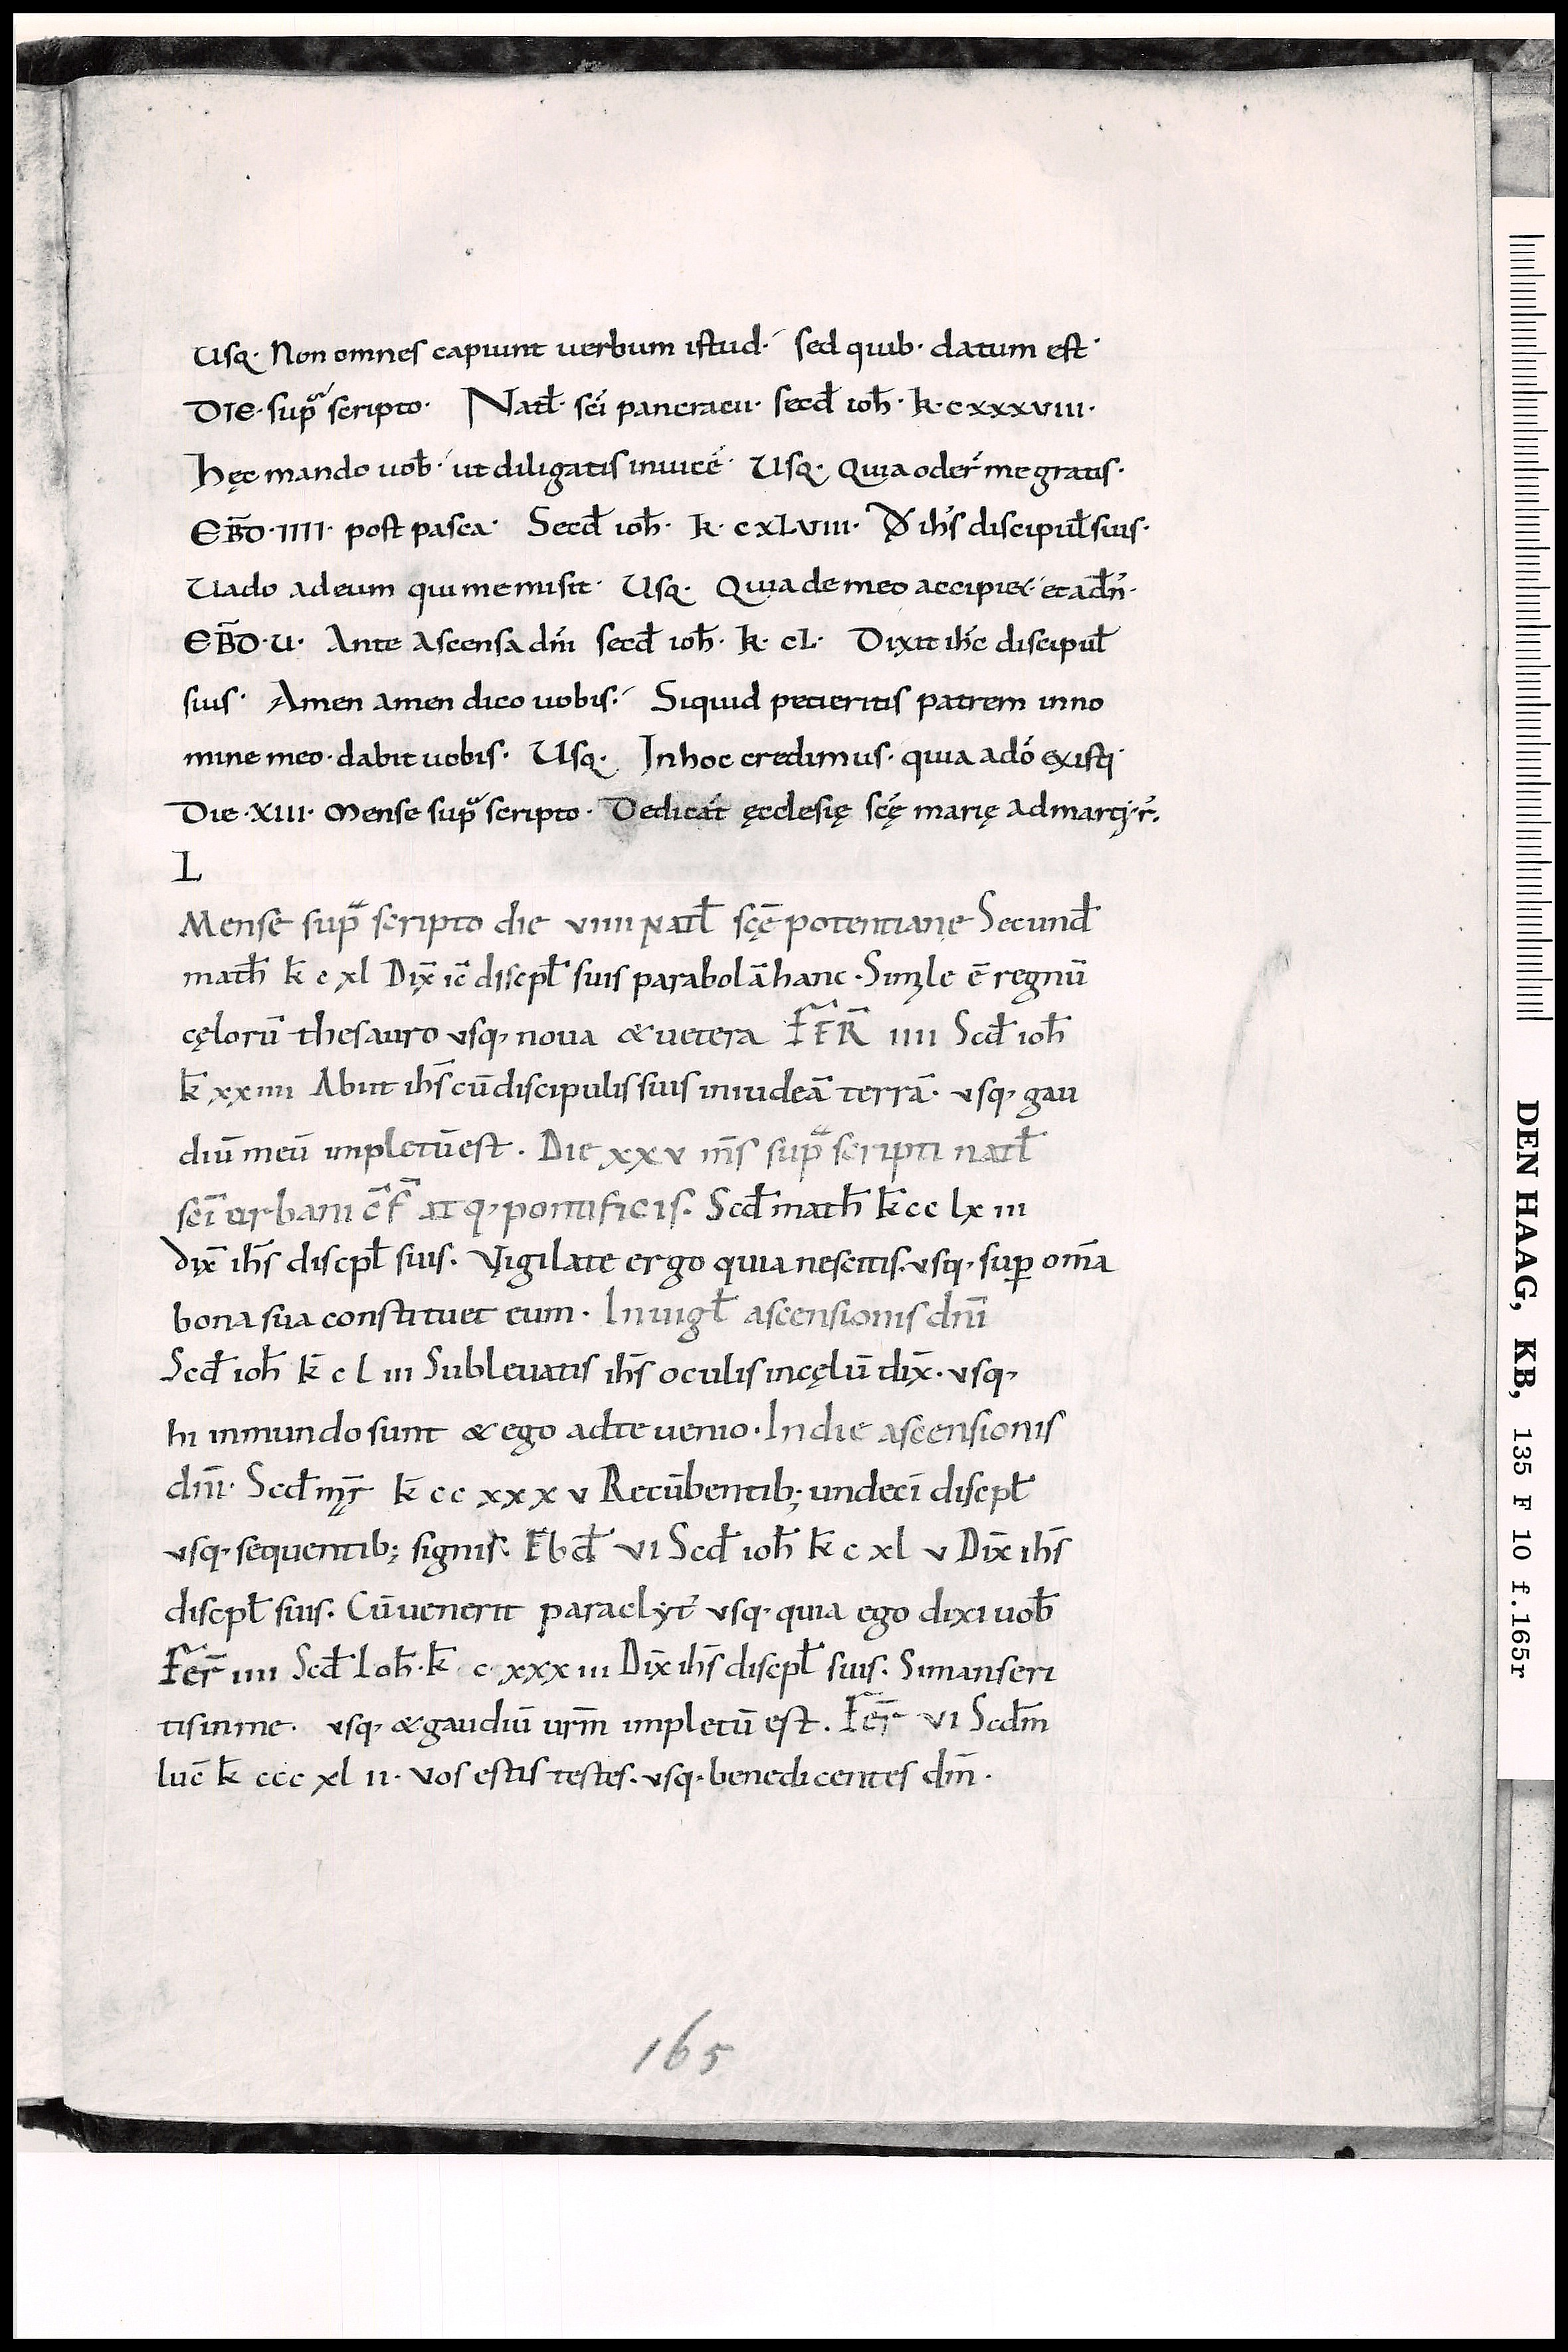 Usq· Non omnes capiunt uerbum istud·́ sed quib· datum est·
DIE· sup̃ scripto· Natł· scı̃ pancracii· secđ ioħ· k· cxxxviii·
hęc mando uoƀ·́ ut diligatis inuicẽ· Usq· Quia oder̃ me gratis·
EB̃D· IIII· post pasca· Secđ ioħ· k· cxLviii· D̃x ih̃s discipuł suis·
Uado ad eum qui me misit· Usq· Quia de meo accipiet·́ et adñ·
EB̃D· U· Ante Ascensa dñi secđ ioħ· k· cL· Dixit ih̃c discipuł
suis· Amen amen dico uobis·́ Siquid petieritis patrem in no
mine meo· dabit uobis· Usq· In hoc credimus· quia a dõ existi·
Die· XIII· Mense sup̃ scripto· Dedicat̃ ęcclesię scę̃ marię ad martyr̃.
L
Mense sup̃ scripto die viiii Natł scę̃ potentianę Secund̄
matħ k̄ c xl Dix̄ ic̄ discpł suis parabolā hanc· Simile ē regnū
cęlorū thesauro usq· noua & uetera FER̄ iiii Scđ ioħ
k̄ xxiiii Abiit ihs̄ cū discipulis suis in iudeā terrā· usq· gau
diū meū impletū est· Die xxv ms̄ sup̃ scripti natł
scı̄ urbani c̄f̄ atq· pontificis· Scđ matħ k̄ cc lx iii
dix̄ ihs̄ discpł suis· Vigilate ergo quia nescitis· usq· suꝑ om̄a
bona sua constituet eum· In uigł ascensionis dn̄i
Scđ ioħ k̄ c l iii Subleuatis ihs̄ oculis in cęlū dix̄· usq·
hi in mundo sunt & ego ad te uenio· In die ascensionis
dn̄i· Scđ mr̄ k̄ cc xxx v Recūbentib; undecī discpł
usq· sequentib; signis· Ebđ VI Scđ ioħ k̄ c xl v Dix̄ ihs̄
discpł suis· Cū uenerit paraclyt' usq· quia ego dixi uoƀ
Fer̄ iiii Scđ Ioħ· k̄ c xxx iii Dix̄ ihs̄ discpł suis· Si manseri
tis in me· usq· & gaudiū urm̄ impletū est· Fer̄ VI Scđm
luc̄ k̄ ccc xl ii· Vos estis testes· usq· benedicentes dm̄·
165
DEN HAAG, KB, 135 F 10 f.165r